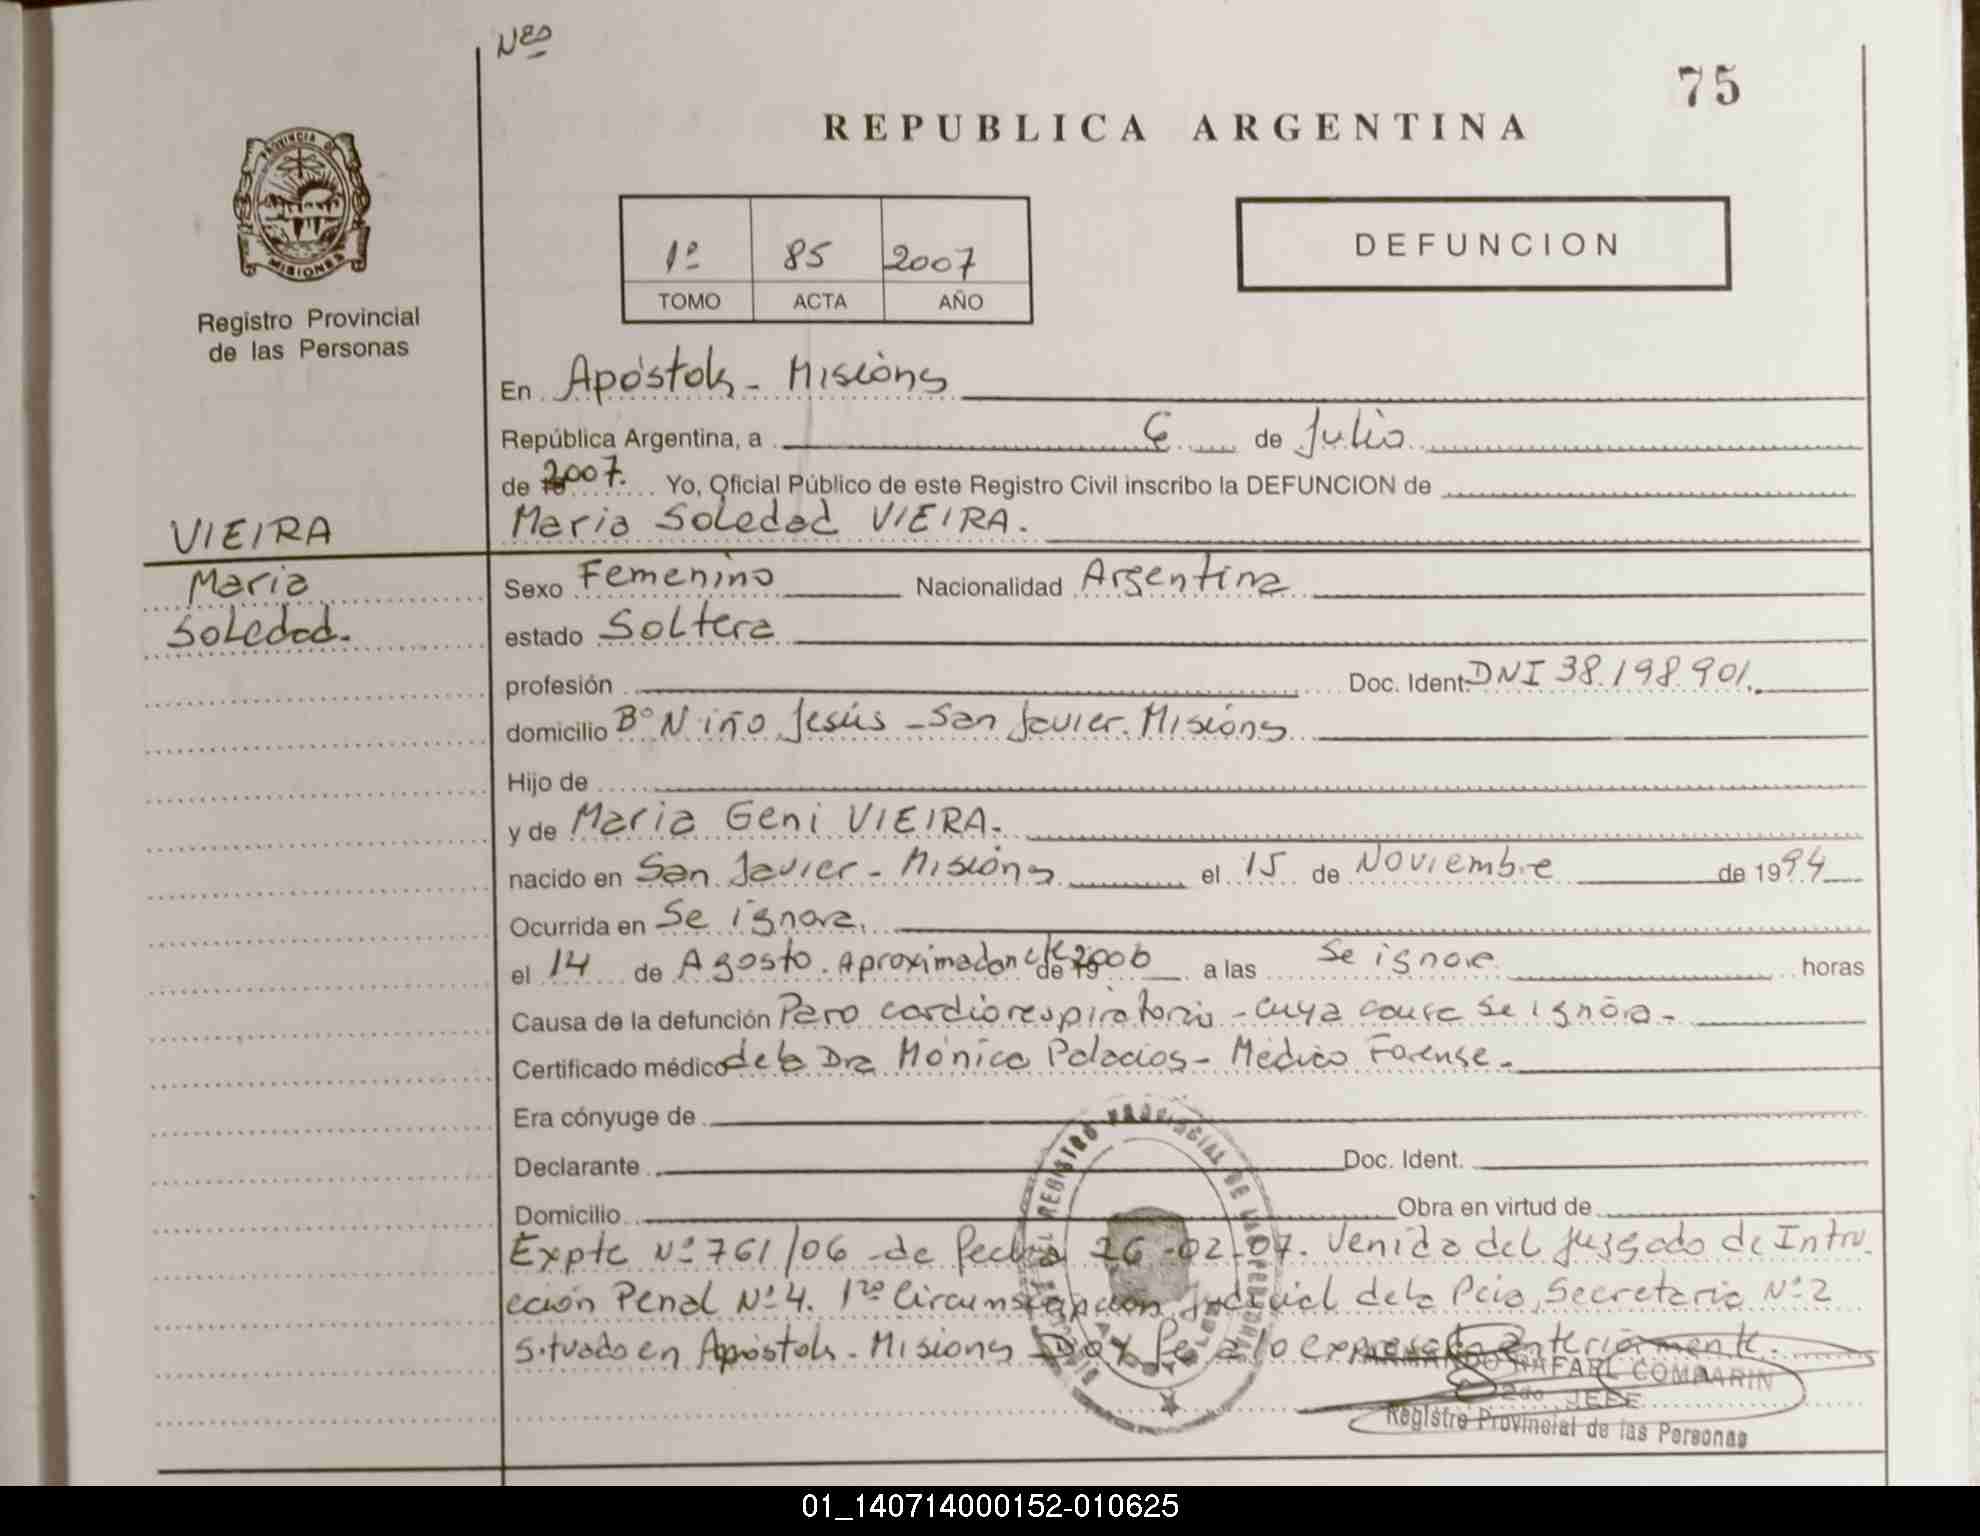 Nes
75
REPUBLICA ARGENTINA
PROVINCIA DE
MISIONES
Registro Provincial
de las Personas
1º 85 2007
TOMO ACTA AÑO
DEFUNCION
En Apóstoles - Misiones
República Argentina, a 6 de Julio
de 2007. Yo, Oficial Público de este Registro Civil inscribo la DEFUNCION de
VIEIRA
Maria Soledad VIEIRA.
Maria
Soledad.
Sexo Femenino Nacionalidad Argentina
estado Soltera
profesión Doc. Ident. DNI 38.198.901.
domicilio Bº Niño Jesús - San Javier. Misiones
Hijo de
y de Maria Geni VIEIRA.
nacido en San Javier - Misiones el 15 de Noviembre de 1994
Ocurrida en Se ignora.
el 14 de Agosto. Aproximadamente de 2006 a las Se ignora horas
Causa de la defunción Paro cardiorespiratorio - cuya causa se ignora -
Certificado médico de la Dra Mónica Palacios - Médico Forense.
Era cónyuge de
Declarante Doc. Ident.
Domicilio Obra en virtud de
Expte Nº 761/06 - de fecha 26-02-07. Venida del Juzgado de Intru
cción Penal Nº 4. 1ra Circunscripcion Judicial de la Pcia, Secretaria Nº 2
situado en Apóstoles - Misiones Doy fe a lo expresado anteriormente.
RAFAEL COMPARIN
2do JEFE
Registro Provincial de las Personas
REGISTRO PROVINCIAL DE LAS PERSONAS
01_140714000152-010625